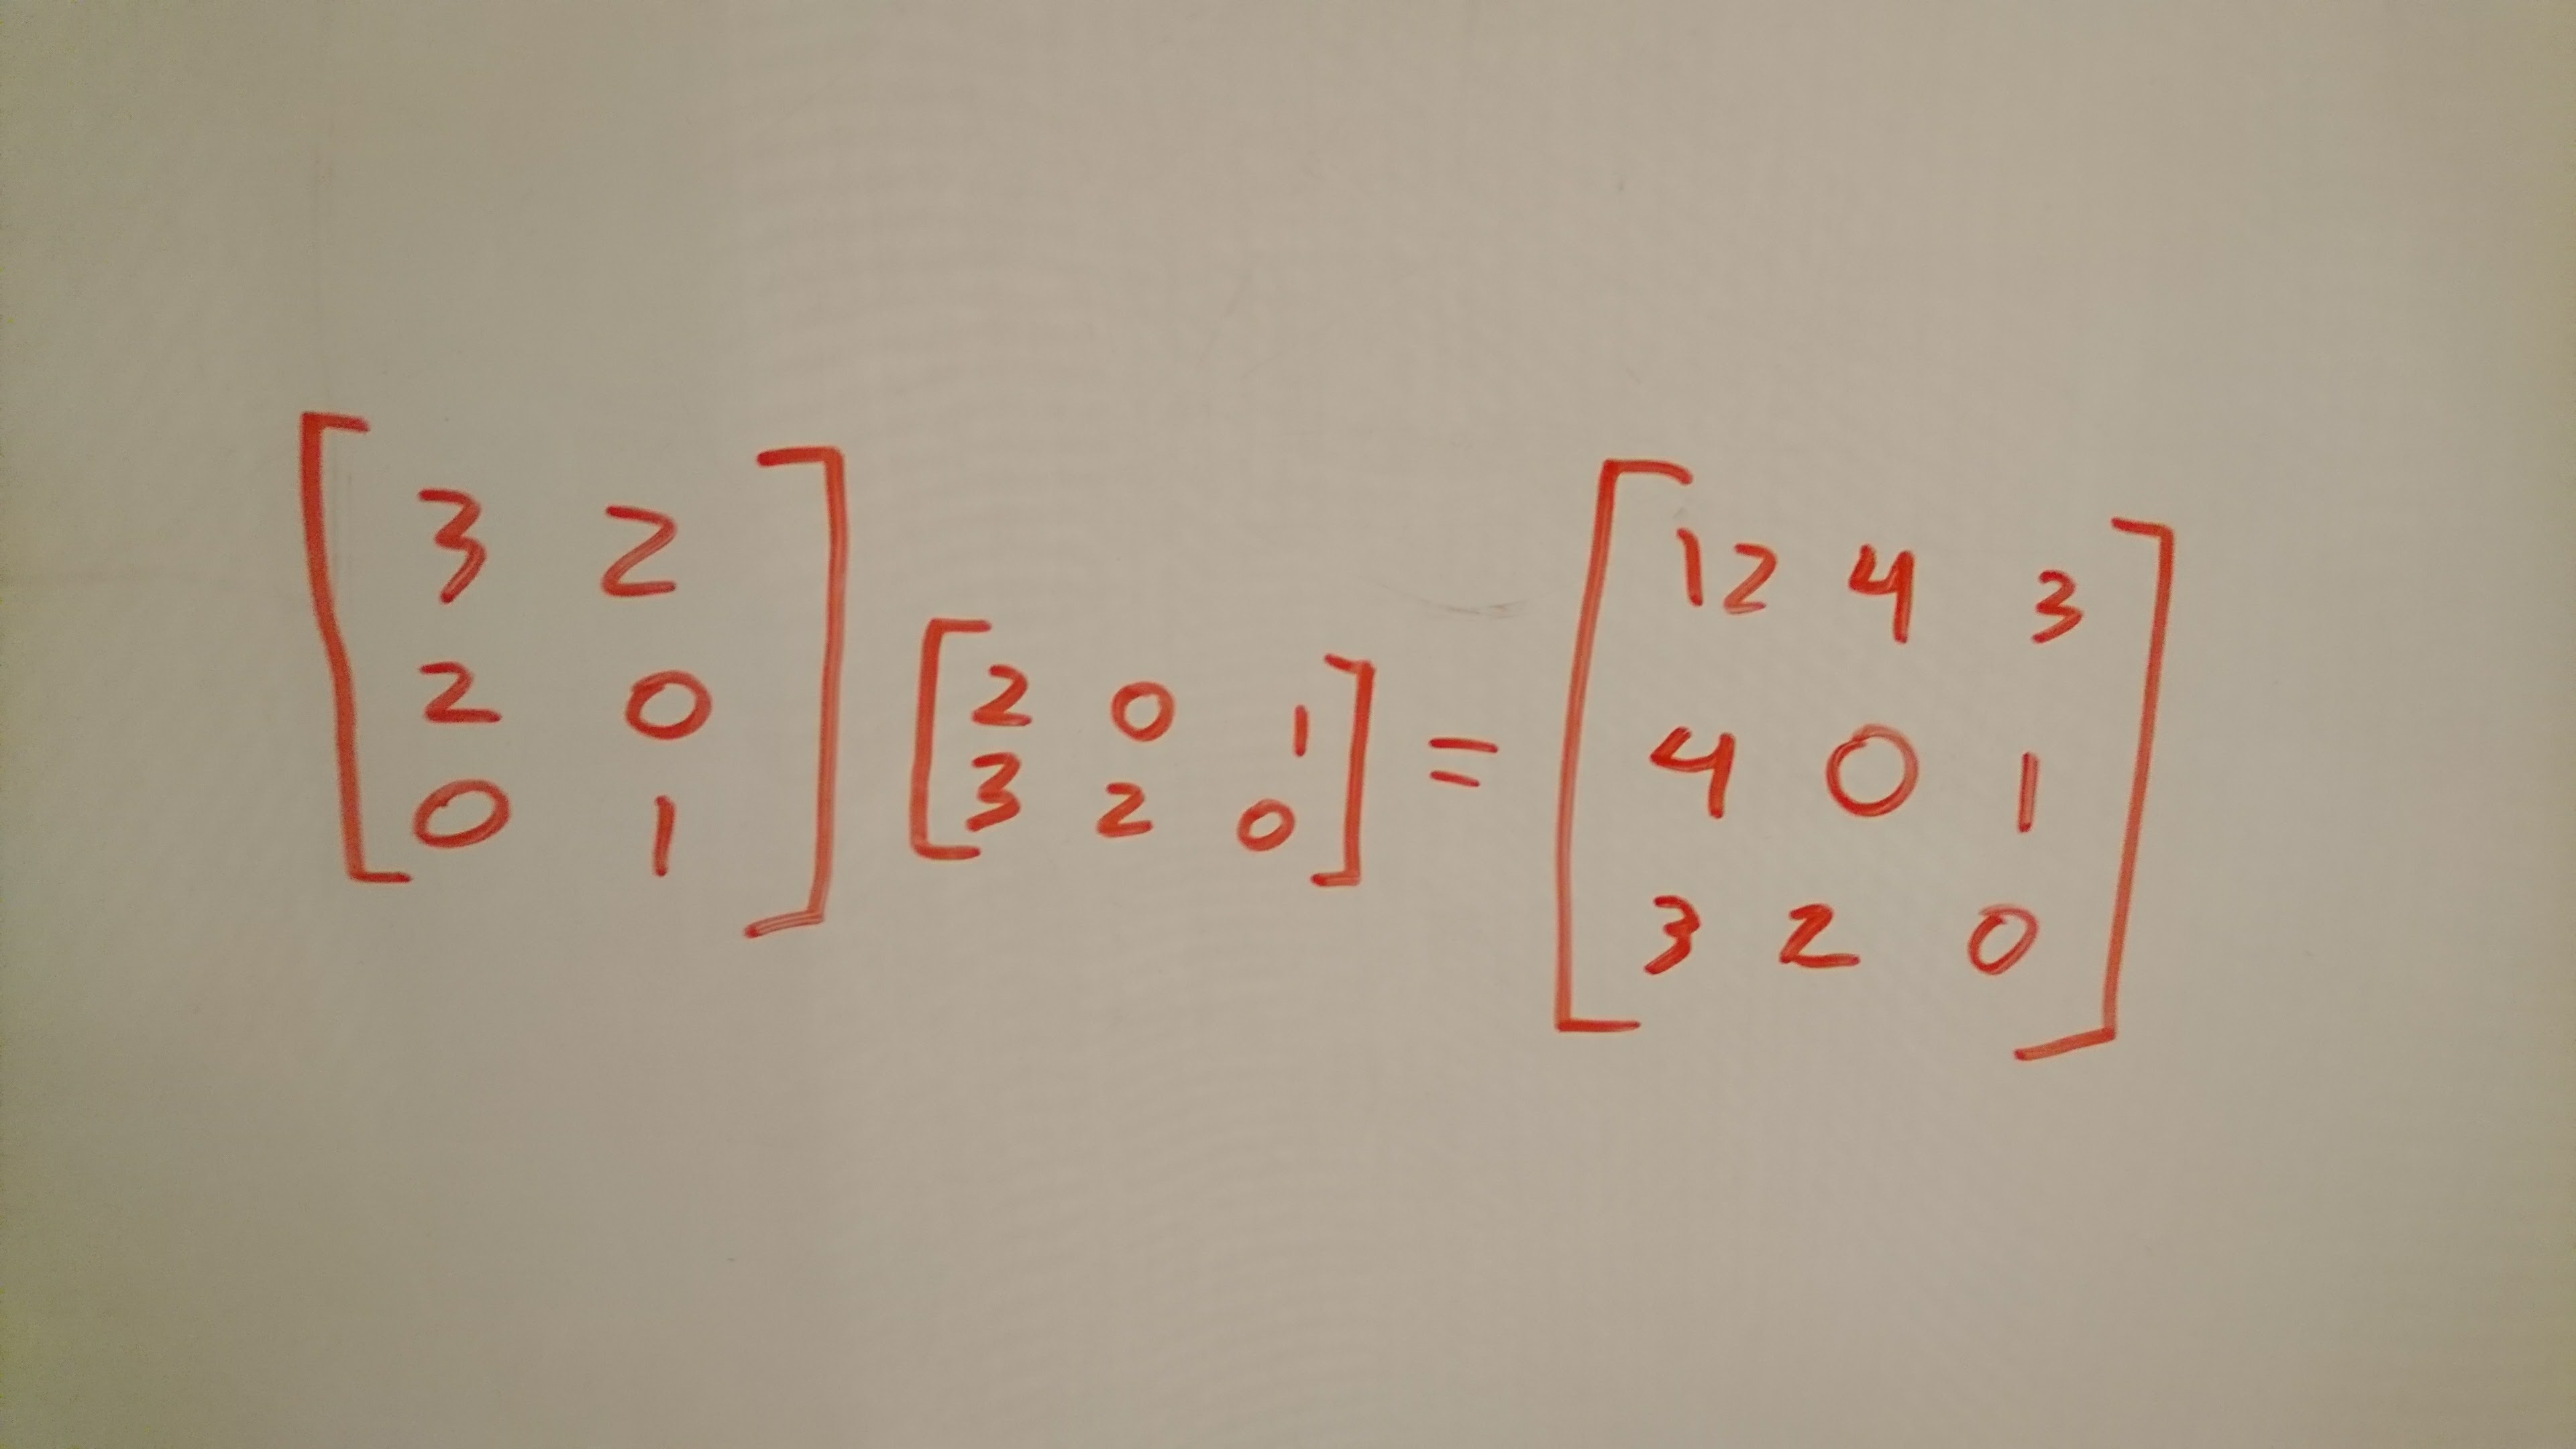 [3 2
2 0
0 1] [2 0 1
3 2 0] = [12 4 3
4 0 1
3 2 0]